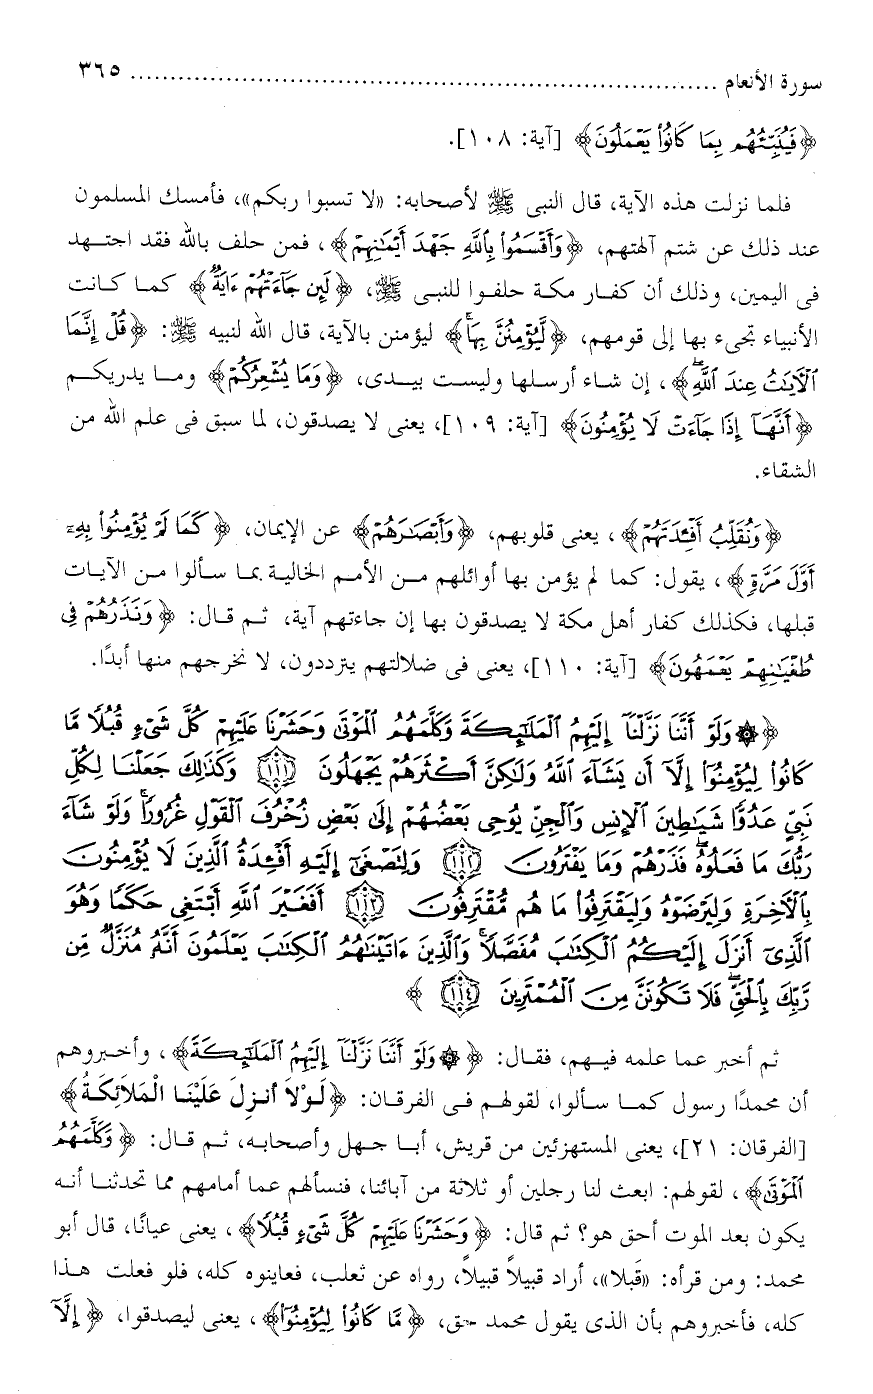 سورة الأنعام ........................................................................ ٣٦٥
﴿فَيُنَبِّئُهُم بِمَا كَانُوا۟ يَعْمَلُونَ﴾ [آية: ١٠٨].
فلما نزلت هذه الآية، قال النبى ﷺ لأصحابه: «لا تسبوا ربكم»، فأمسك المسلمون
عند ذلك عن شتم آلهتهم، ﴿وَأَقْسَمُوا۟ بِٱللَّهِ جَهْدَ أَيْمَـٰنِهِمْ﴾، فمن حلف بالله فقد اجتهد
فى اليمين، وذلك أن كفار مكة حلفوا للنبى ﷺ، ﴿لَئِن جَآءَتْهُمْ ءَايَةٌ﴾ كما كانت
الأنبياء تجىء بها إلى قومهم، ﴿لَّيُؤْمِنُنَّ بِهَا﴾ ليؤمنن بالآية، قال الله لنبيه ﷺ: ﴿قُلْ إِنَّمَا
ٱلْـَٔايَـٰتُ عِندَ ٱللَّهِ﴾، إن شاء أرسلها وليست بيدى، ﴿وَمَا يُشْعِرُكُمْ﴾ وما يدريكم
﴿أَنَّهَآ إِذَا جَآءَتْ لَا يُؤْمِنُونَ﴾ [آية: ١٠٩]، يعنى لا يصدقون، لما سبق فى علم الله من
الشقاء.
﴿وَنُقَلِّبُ أَفْـِٔدَتَهُمْ﴾، يعنى قلوبهم، ﴿وَأَبْصَـٰرَهُمْ﴾ عن الإيمان، ﴿كَمَا لَمْ يُؤْمِنُوا۟ بِهِۦٓ
أَوَّلَ مَرَّةٍ﴾، يقول: كما لم يؤمن بها أوائلهم من الأمم الخالية بما سألوا من الآيات
قبلها، فكذلك كفار أهل مكة لا يصدقون بها إن جاءتهم آية، ثم قال: ﴿وَنَذَرُهُمْ فِى
طُغْيَـٰنِهِمْ يَعْمَهُونَ﴾ [آية: ١١٠]، يعنى فى ضلالتهم يترددون، لا نخرجهم منها أبدًا.
﴿۞ وَلَوْ أَنَّنَا نَزَّلْنَآ إِلَيْهِمُ ٱلْمَلَـٰٓئِكَةَ وَكَلَّمَهُمُ ٱلْمَوْتَىٰ وَحَشَرْنَا عَلَيْهِمْ كُلَّ شَىْءٍ قُبُلًا مَّا
كَانُوا۟ لِيُؤْمِنُوٓا۟ إِلَّآ أَن يَشَآءَ ٱللَّهُ وَلَـٰكِنَّ أَكْثَرَهُمْ يَجْهَلُونَ ﴿١١١﴾ وَكَذَٰلِكَ جَعَلْنَا لِكُلِّ
نَبِىٍّ عَدُوًّا شَيَـٰطِينَ ٱلْإِنسِ وَٱلْجِنِّ يُوحِى بَعْضُهُمْ إِلَىٰ بَعْضٍ زُخْرُفَ ٱلْقَوْلِ غُرُورًا ۚ وَلَوْ شَآءَ
رَبُّكَ مَا فَعَلُوهُ ۖ فَذَرْهُمْ وَمَا يَفْتَرُونَ ﴿١١٢﴾ وَلِتَصْغَىٰٓ إِلَيْهِ أَفْـِٔدَةُ ٱلَّذِينَ لَا يُؤْمِنُونَ
بِٱلْـَٔاخِرَةِ وَلِيَرْضَوْهُ وَلِيَقْتَرِفُوا۟ مَا هُم مُّقْتَرِفُونَ ﴿١١٣﴾ أَفَغَيْرَ ٱللَّهِ أَبْتَغِى حَكَمًا وَهُوَ
ٱلَّذِىٓ أَنزَلَ إِلَيْكُمُ ٱلْكِتَـٰبَ مُفَصَّلًا ۚ وَٱلَّذِينَ ءَاتَيْنَـٰهُمُ ٱلْكِتَـٰبَ يَعْلَمُونَ أَنَّهُۥ مُنَزَّلٌ مِّن
رَّبِّكَ بِٱلْحَقِّ ۖ فَلَا تَكُونَنَّ مِنَ ٱلْمُمْتَرِينَ ﴿١١٤﴾ ﴾
ثم أخبر عما علمه فيهم، فقال: ﴿۞ وَلَوْ أَنَّنَا نَزَّلْنَآ إِلَيْهِمُ ٱلْمَلَـٰٓئِكَةَ﴾، وأخبروهم
أن محمدًا رسول كما سألوا، لقولهم فى الفرقان: ﴿لَوْلاَ أُنزِلَ عَلَيْنَا الْمَلاَئِكَةُ﴾
[الفرقان: ٢١]، يعنى المستهزئين من قريش، أبا جهل وأصحابه، ثم قال: ﴿وَكَلَّمَهُمُ
ٱلْمَوْتَىٰ﴾، لقولهم: ابعث لنا رجلين أو ثلاثة من آبائنا، فنسألهم عما أمامهم مما تحدثنا أنه
يكون بعد الموت أحق هو؟ ثم قال: ﴿وَحَشَرْنَا عَلَيْهِمْ كُلَّ شَىْءٍ قُبُلًا﴾، يعنى عيانًا، قال أبو
محمد: ومن قرأه: «قَبلا»، أراد قبيلاً قبيلاً، رواه عن ثعلب، فعاينوه كله، فلو فعلت هذا
كله، فأخبروهم بأن الذى يقول محمد حق، ﴿مَّا كَانُوا۟ لِيُؤْمِنُوٓا۟﴾، يعنى ليصدقوا، ﴿إِلَّآ